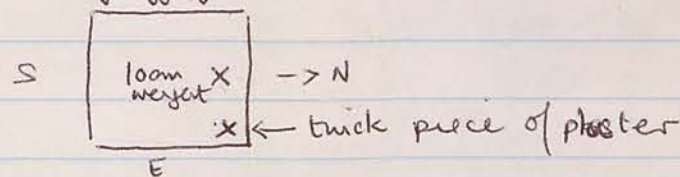 S loom X -> N
weight
X <- thick piece of plaster
E